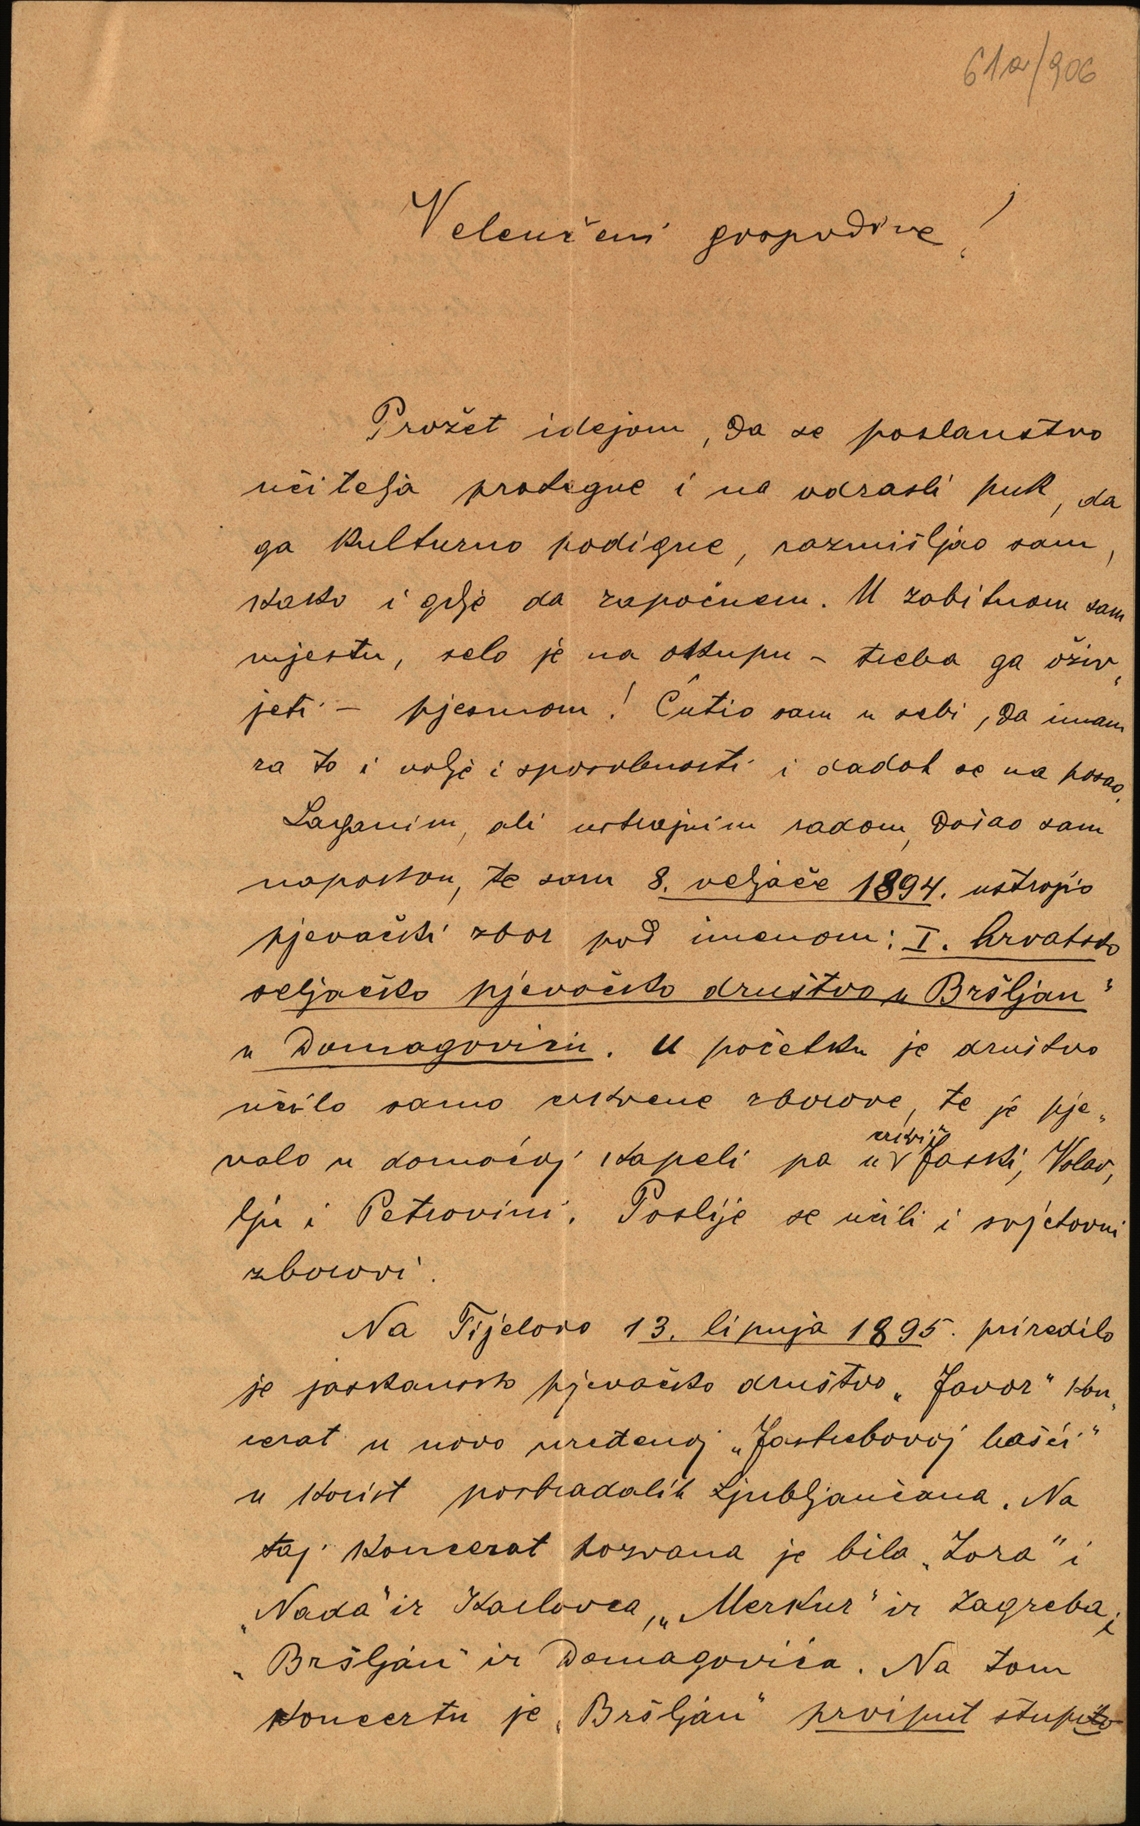 61a/906
Veleučeni gospodine!
Prožet idejom, da se poslanstvo
učitelja protegne i na odrasli puk, da
ga kulturno podigne, razmišljao sam,
kako i gdje da započnem. U zabitnom sam
mjestu, selo je na okupu – treba ga oživ„
jeti – pjesmom! Ćutio sam u sebi, da imam
za to i volje i sposobnosti i dadoh se na posao.
Laganim, ali ustrajnim radom, došao sam
napokon, te sam 8. veljače 1894. ustrojio
pjevački zbor pod imenom: I. hrvatsko
seljačko pjevačko društvo „Bršljan"
u Domagoviću. U početku je društvo
učilo samo crkvene zborove, te je pje„
crkvi
valo u domaćoj kapeli pa u Jaski, Volav„
lju i Petrovini. Poslije se učili i svjetovni
zborovi.
Na Tijelovo 13. lipnja 1895. priredilo
je jaskansko pjevačko društvo „Javor" kon„
cerat u novo uređenoj „Jastrebovoj bašći"
u korist postradalih Ljubljančana. Na
taj koncerat pozvana je bila „Zora" i
„Nada" iz Karlovca, „Merkur" iz Zagreba i
„Bršljan" iz Domagovića. Na tom
koncertu je „Bršljan" prviput stupio